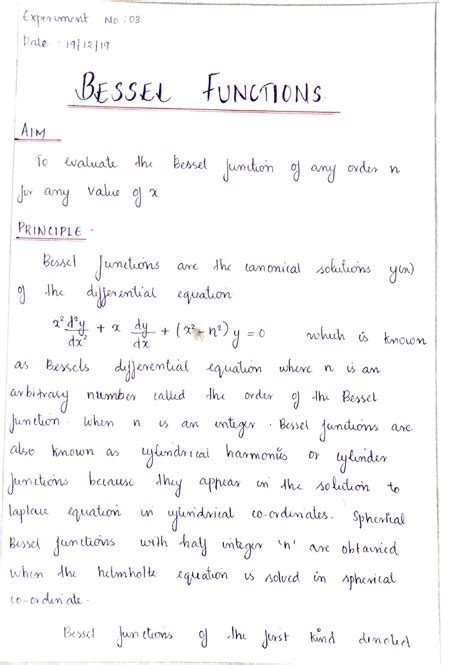 Experiment No : 03
Date : 19/12/19
BESSEL FUNCTIONS
AIM
To evaluate the Bessel function of any order n
for any value of x
PRINCIPLE -
Bessel functions are the canonical solutions y(x)
of the differential equation
x² d²y/dx² + x dy/dx + (x² - n²) y = 0 which is known
as Bessels differential equation where n is an
arbitrary number called the order of the Bessel
function. When n is an integer. Bessel functions are
also known as cylindrical harmonis or cylinder
functions because they appear in the solution to
laplace equation in cylindrical co-ordinates. Spherical
Bessel functions with half integer 'n' are obtained
when the helmholtz equation is solved in spherical
co-ordinate.
Bessel functions of the first kind denoted